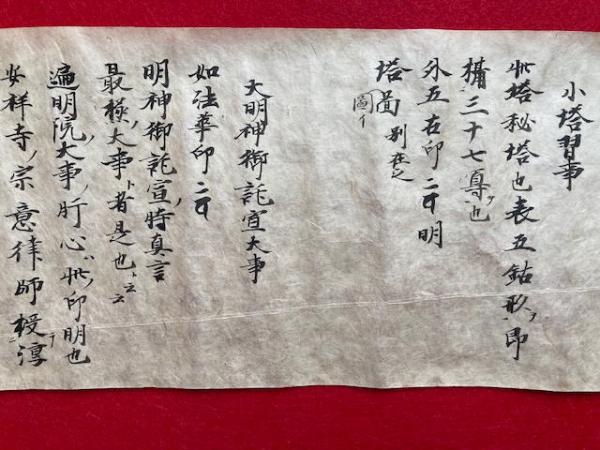 小塔習事
此塔秘塔也表五鈷形ヲ即
攝三十七尊ヲ也
外五右印二明
塔啚別在之
圖イ
大明神御託宣大事
如法華印二
明神御託宣ノ時真言
最極ノ大事ト者是也ト云云
遍明院ノ大事ノ肝心ハ此印明也
安祥寺ノ宗意律師授淳